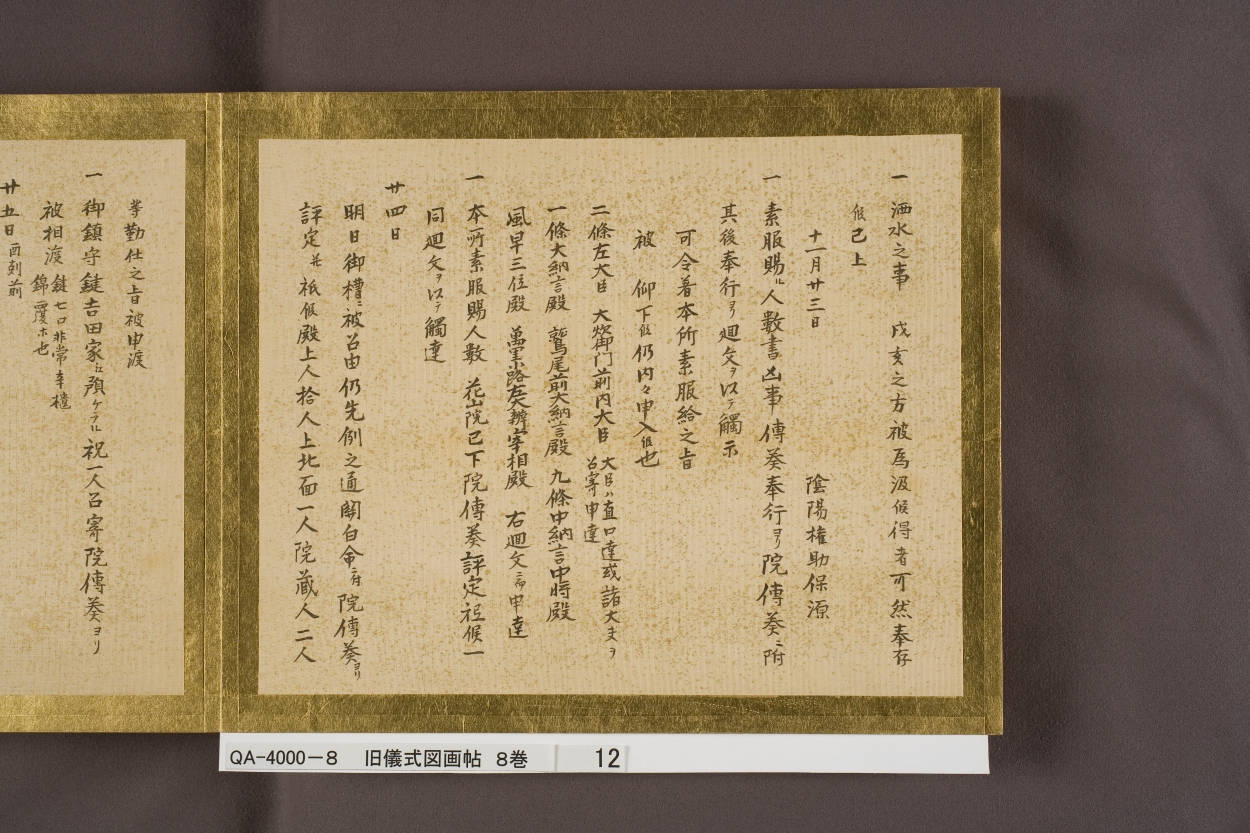 一 洒水之事 戌亥之方被為汲候得者可然奉存
候已上
十一月廿三日 陰陽権助保源
一 素服賜ル人数書凶事傳奏奉行ヨリ院傳奏ニ附
其後奉行ヨリ廻文ヲ以テ觸示
可令着本所素服給之旨
被 仰下候仍内々申入候也
二條左大臣 大炊御門前内大臣 大臣ハ直口達或諸大夫ヲ
召寄申達
一條大納言殿 鷲尾前大納言殿 九條中納言中将殿
風早三位殿 萬里小路左大辨宰相殿 右廻文ニ而申達
一 本所素服賜人数 花山院已下院傳奏評定祗候一
同廻文ヲ以テ觸達
廿四日
明日御槽ニ被召由仍先例之通関白命ニ付院傳奏ヨリ
評定並祗候殿上人拾人上北面一人院蔵人二人
挙勤仕之旨被申渡
一 御鎮守鍵吉田家江預ケラル祝一人召寄院傳奏ヨリ
被相渡 鍵七口非常辛櫃
錦覆ホ也
廿五日 酉刻前
QA-4000-8 旧儀式図画帖 8巻 12